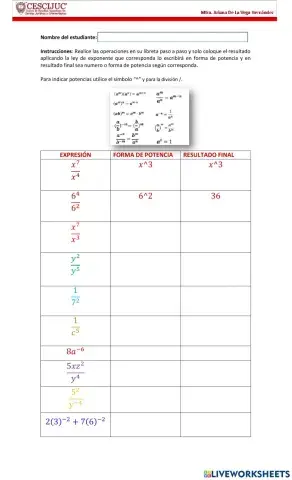 CESCIJUC
Mtra. Iliana De La Vega Hernández
Nombre del estudiante:
Instrucciones: Realice las operaciones en su libreta paso a paso y solo coloque el resultado
aplicando la ley de exponente que corresponda lo escribirá en forma de potencia y en
resultado final sea numero o forma de potencia según corresponda.
Para indicar potencias utilice el símbolo "^" y para la división /.
EXPRESIÓN FORMA DE POTENCIA RESULTADO FINAL
x^7/x^4 x^3 x^3
6^4/6^2 6^2 36
x^7/x^3
y^2/y^5
1/7^2
1/c^5
8a^-6
5xz^2/y^4
2(3)^-2 + 7(6)^-2
LIVEWORKSHEETS